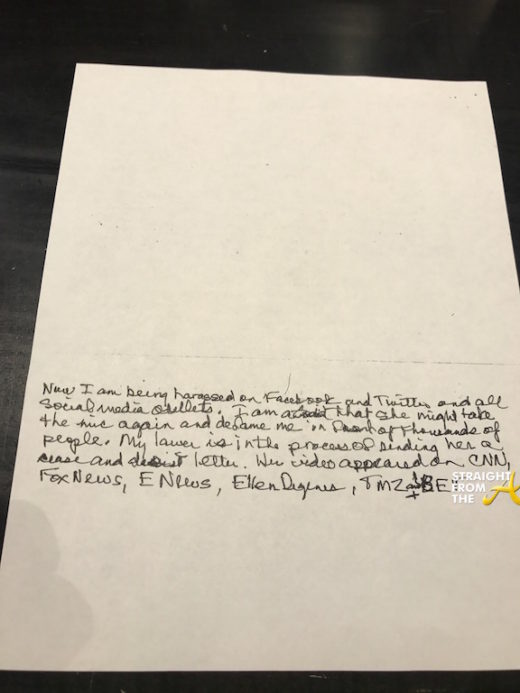 Now I am being harassed on Facebook and Twitter and all
social media outlets. I am afraid that she might take
the mic again and defame me in front of thousands of
people. My lawer is in the process of sending her a
cease and desist letter. Her video appeared on CNN,
Fox News, E News, Ellen Degenes, TMZ and BE
STRAIGHT
FROM
THE A